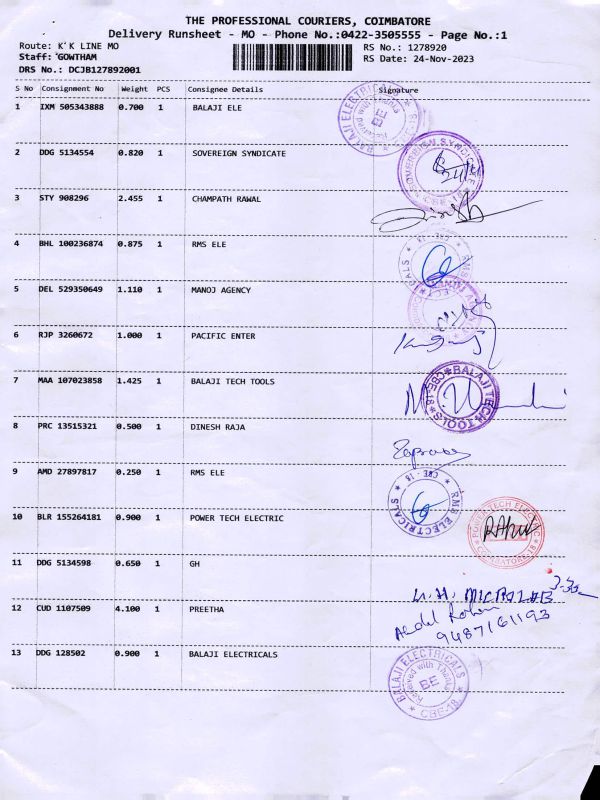 THE PROFESSIONAL COURIERS, COIMBATORE
Delivery Runsheet - MO - Phone No.:0422-3505555 - Page No.:1
Route: K K LINE MO RS No.: 1278920
Staff: GOWTHAM RS Date: 24-Nov-2023
DRS No.: DCJB127892001
S No Consignment No Weight PCS Consignee Details Signature
1 IXM 505343888 0.700 1 BALAJI ELE
BALAJI ELECTRICALS
Received with Thanks
BE
CBE-18
2 DDG 5134554 0.820 1 SOVEREIGN SYNDICATE
SOVEREIGN SYNDICATE
CBE-18
3 STY 908296 2.455 1 CHAMPATH RAWAL
4 BHL 100236874 0.875 1 RMS ELE
CBE - 18
5 DEL 529350649 1.110 1 MANOJ AGENCY
6 RJP 3260672 1.000 1 PACIFIC ENTER
7 MAA 107023858 1.425 1 BALAJI TECH TOOLS
BALAJI TECH TOOLS
CBE-18
8 PRC 13515321 0.500 1 DINESH RAJA
9 AMD 27897817 0.250 1 RMS ELE
RMS ELECTRICALS
CBE - 18
10 BLR 155264181 0.900 1 POWER TECH ELECTRIC
POWER TECH ELECTRIC
COIMBATORE-18
11 DDG 5134598 0.650 1 GH
G.H. MICROLAB
12 CUD 1107509 4.100 1 PREETHA
9487161193
13 DDG 128502 0.900 1 BALAJI ELECTRICALS
BALAJI ELECTRICALS
Received with Thanks
BE
CBE-18